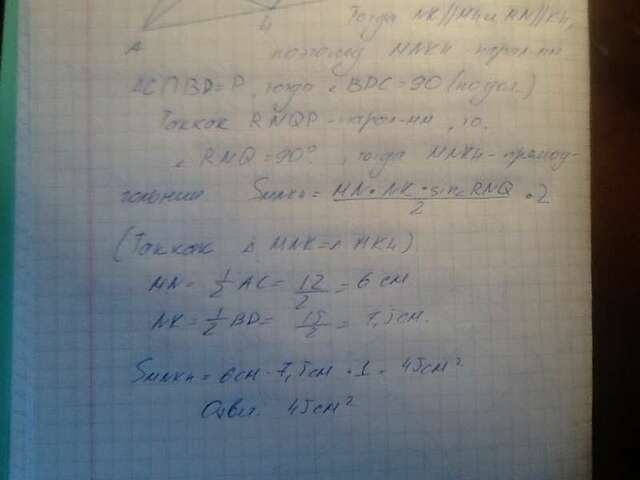 A
Тогда NK||MH и MN||KH,
поэтому MNKH парал-мм
AC∩BD=P, тогда ∠BPC=90 (по усл.)
Так как RNQP - парал-мм, то
∠RNQ=90°, тогда MNKH-прямоу-
гольник SMNKH = MN•NK•sin∠RNQ / 2 • 2
(Так как △MNK=△MKH)
MN= 1/2 AC= 12/2 = 6 см
NK= 1/2 BD= 15/2 = 7,5см.
SMNKH = 6см · 7,5см · 1 = 45см²
Ответ. 45см²